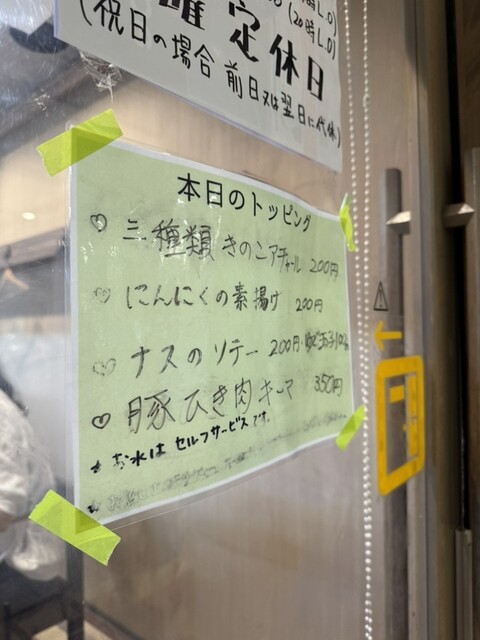 (20時L.O)
定休日
(祝日の場合 前日又は翌日に代休)
本日のトッピング
♡ 三種類きのこアチャール 200円
♡ にんにくの素揚げ 200円
♡ ナスのソテー 200円
♡ 豚ひき肉キーマ 350円
★ お水はセルフサービスです。